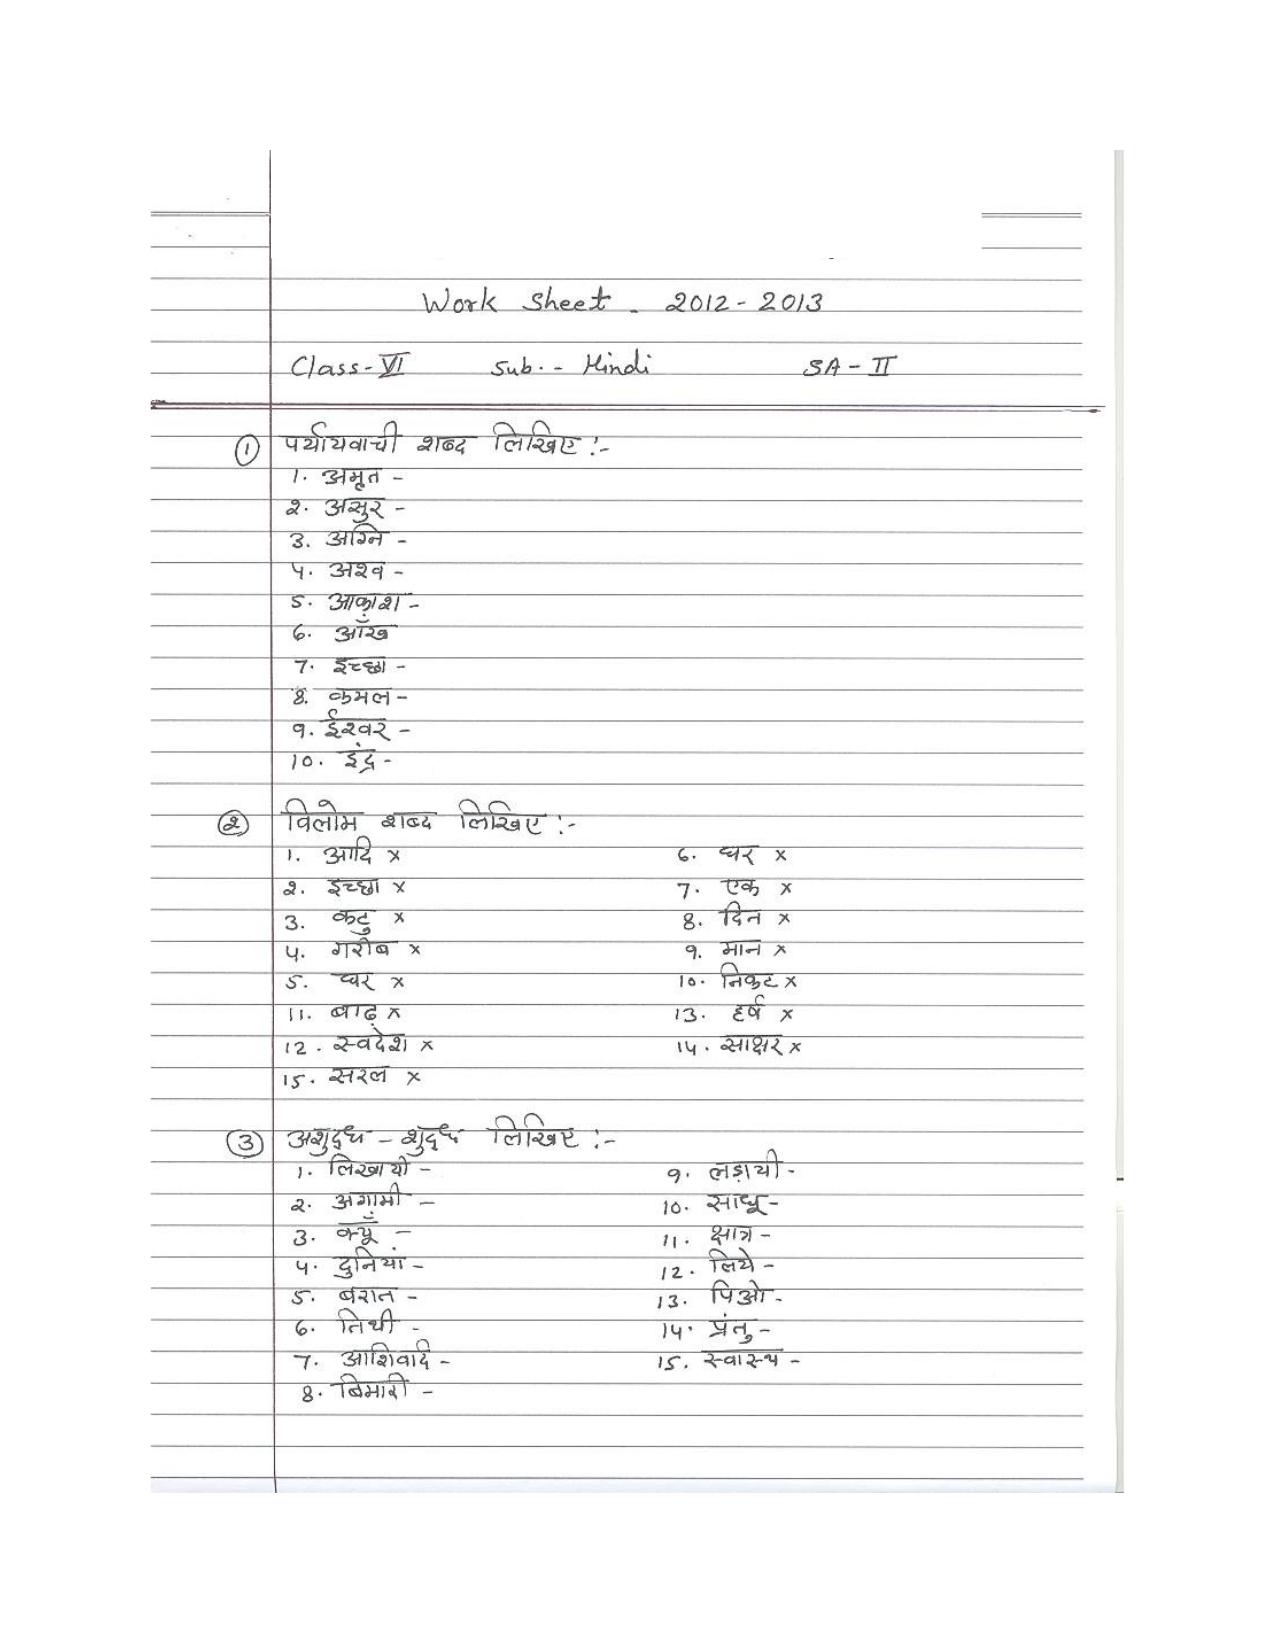 Work Sheet - 2012-2013
Class-VI Sub.- Hindi SA-II
① पर्यायवाची शब्द लिखिए :-
1. अमृत -
2. असुर -
3. अग्नि -
4. अश्व -
5. आकाश -
6. आँख
7. इच्छा -
8. कमल -
9. ईश्वर -
10. इंद्र -
② विलोम शब्द लिखिए :-
1. आदि × 6. घर ×
2. इच्छा × 7. एक ×
3. कटु × 8. दिन ×
4. गरीब × 9. मान ×
5. घर × 10. निकट ×
11. बाढ़ × 13. हर्ष ×
12. स्वदेश × 14. साक्षर ×
15. सरल ×
③ अशुद्ध - शुद्ध लिखिए :-
1. लिखायी - 9. लड़ायी -
2. अगामी - 10. साधू -
3. क्यूँ - 11. क्षात्र -
4. दुनियां - 12. लिये -
5. बरात - 13. पिओ -
6. तिथी - 14. प्रंतु -
7. आशिर्वाद - 15. स्वास्थ -
8. बिमारी -